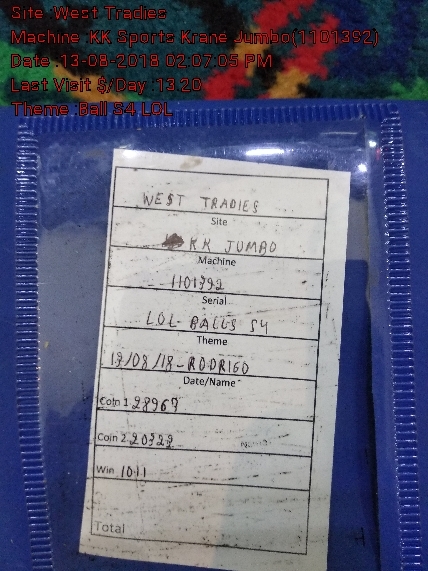 Site :West Tradies
Machine :KK Sports Krane Jumbo(1101392)
Date :13-08-2018 02:07:05 PM
Last Visit $/Day :13.20
Theme :Ball S4 LOL
WEST TRADIES
Site
KK JUMBO
Machine
1101392
Serial
LOL- BALLS S4
Theme
13/08/18-RODRIGO
Date/Name
Coin 1 28967
Coin 2 20322
Win 1011
Total